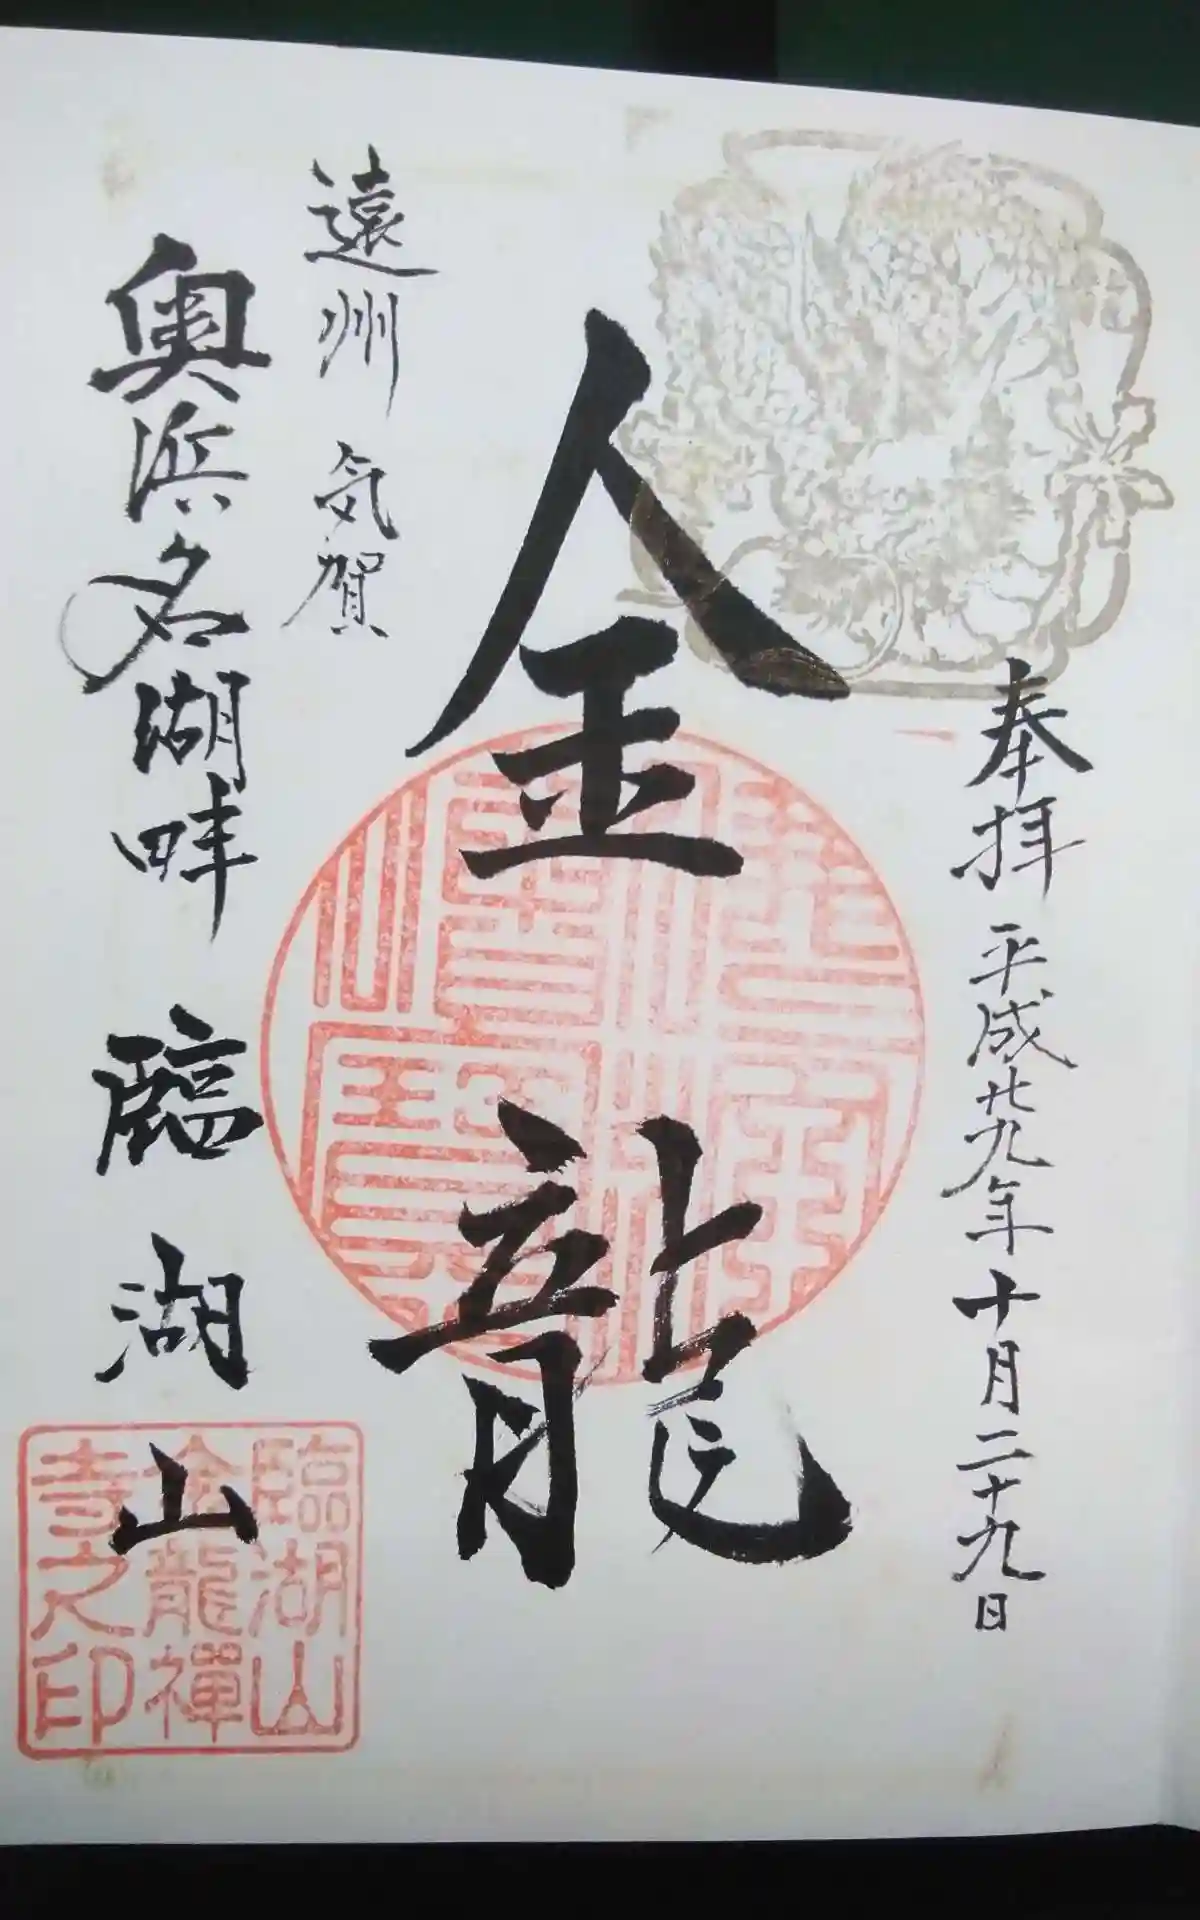 奉拝 平成廿九年十月二十九日
金龍
遠州 気賀
奥浜名湖畔 臨湖山
臨湖山
金龍禪
寺之印